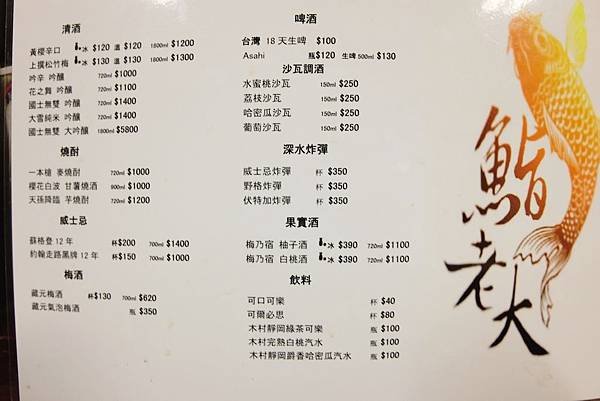 清酒
黃櫻辛口 冰 $120 溫 $120 1800ml $1200
上撰松竹梅 冰 $130 溫 $130 1800ml $1300
吟辛 吟釀 720ml $1000
花之舞 吟釀 720ml $1100
國士無雙 吟釀 720ml $1400
大雪純米 吟釀 720ml $1400
國士無雙 大吟釀 1800ml $5800
燒酎
一本槍 麥燒酎 720ml $1000
櫻花白波 甘薯燒酒 900ml $1000
天孫降臨 芋燒酎 720ml $1200
威士忌
蘇格登 12 年 杯$200 700ml $1400
約翰走路黑牌 12 年 杯$150 700ml $1000
梅酒
藏元梅酒 杯$130 700ml $620
藏元氣泡梅酒 瓶 $350
啤酒
台灣 18 天生啤 $100
Asahi 瓶$120 生啤 500ml $130
沙瓦調酒
水蜜桃沙瓦 150ml $250
荔枝沙瓦 150ml $250
哈密瓜沙瓦 150ml $250
葡萄沙瓦 150ml $250
深水炸彈
威士忌炸彈 杯 $350
野格炸彈 杯 $350
伏特加炸彈 杯 $350
果實酒
梅乃宿 柚子酒 冰 $390 720ml $1100
梅乃宿 白桃酒 冰 $390 720ml $1100
飲料
可口可樂 杯 $40
可爾必思 杯 $80
木村靜岡綠茶可樂 瓶 $100
木村完熟白桃汽水 瓶 $100
木村靜岡爵香哈密瓜汽水 瓶 $100
鮨老大